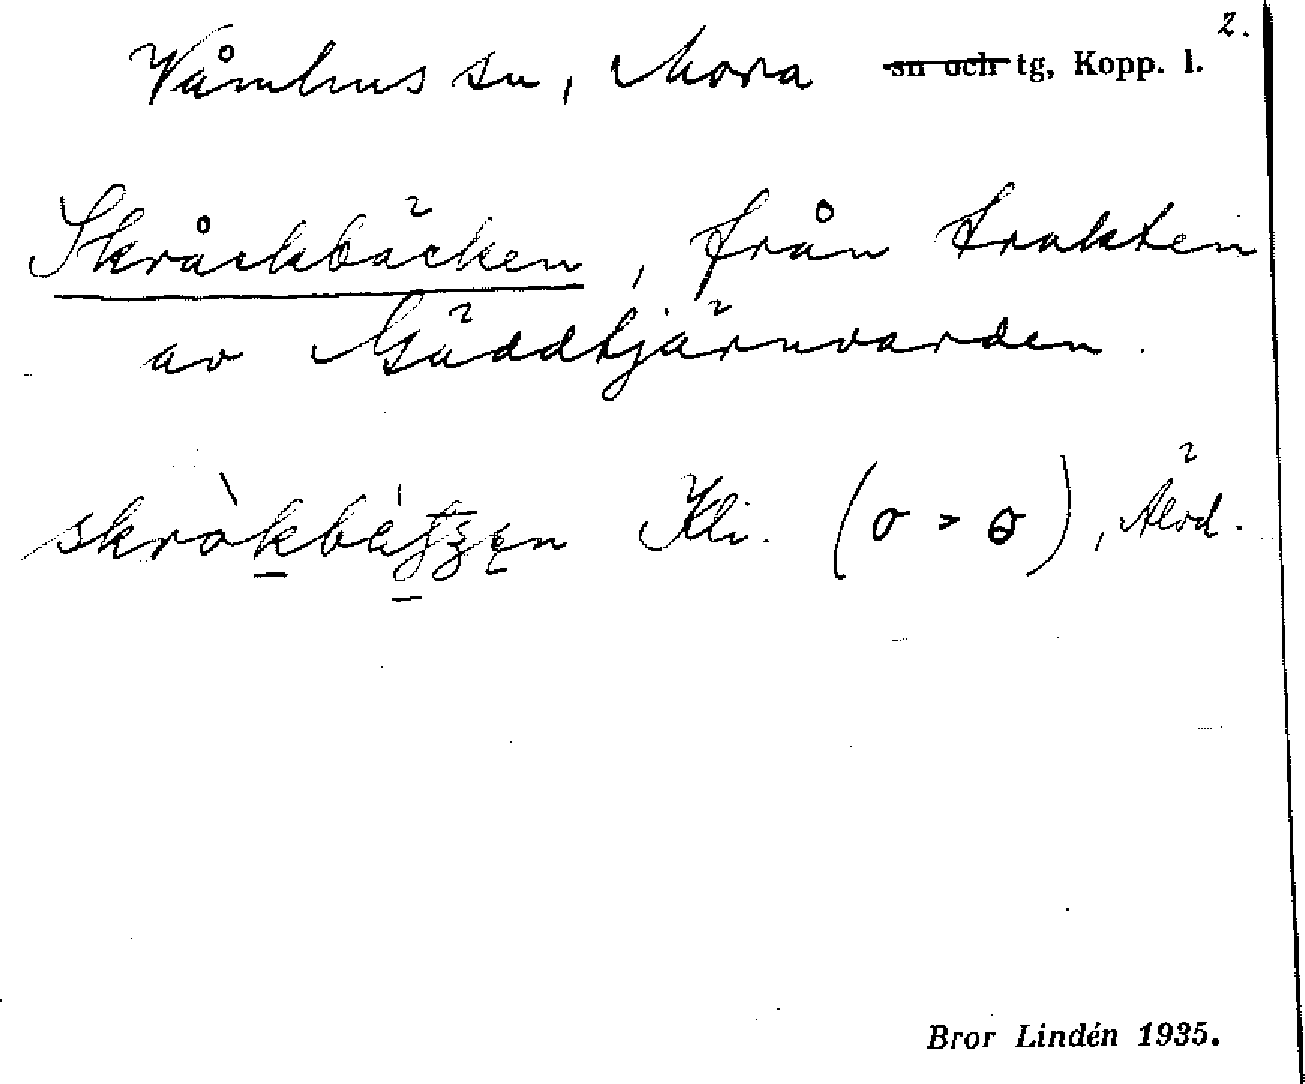 2.
Våmhus sn, Mora ~~sn och~~ tg, Kopp. l.
Skråckbäcken, från trakten
av Gäddtjärnvarden.
Kli. (σ > ɵ), Älvd.
Bror Lindén 1935.